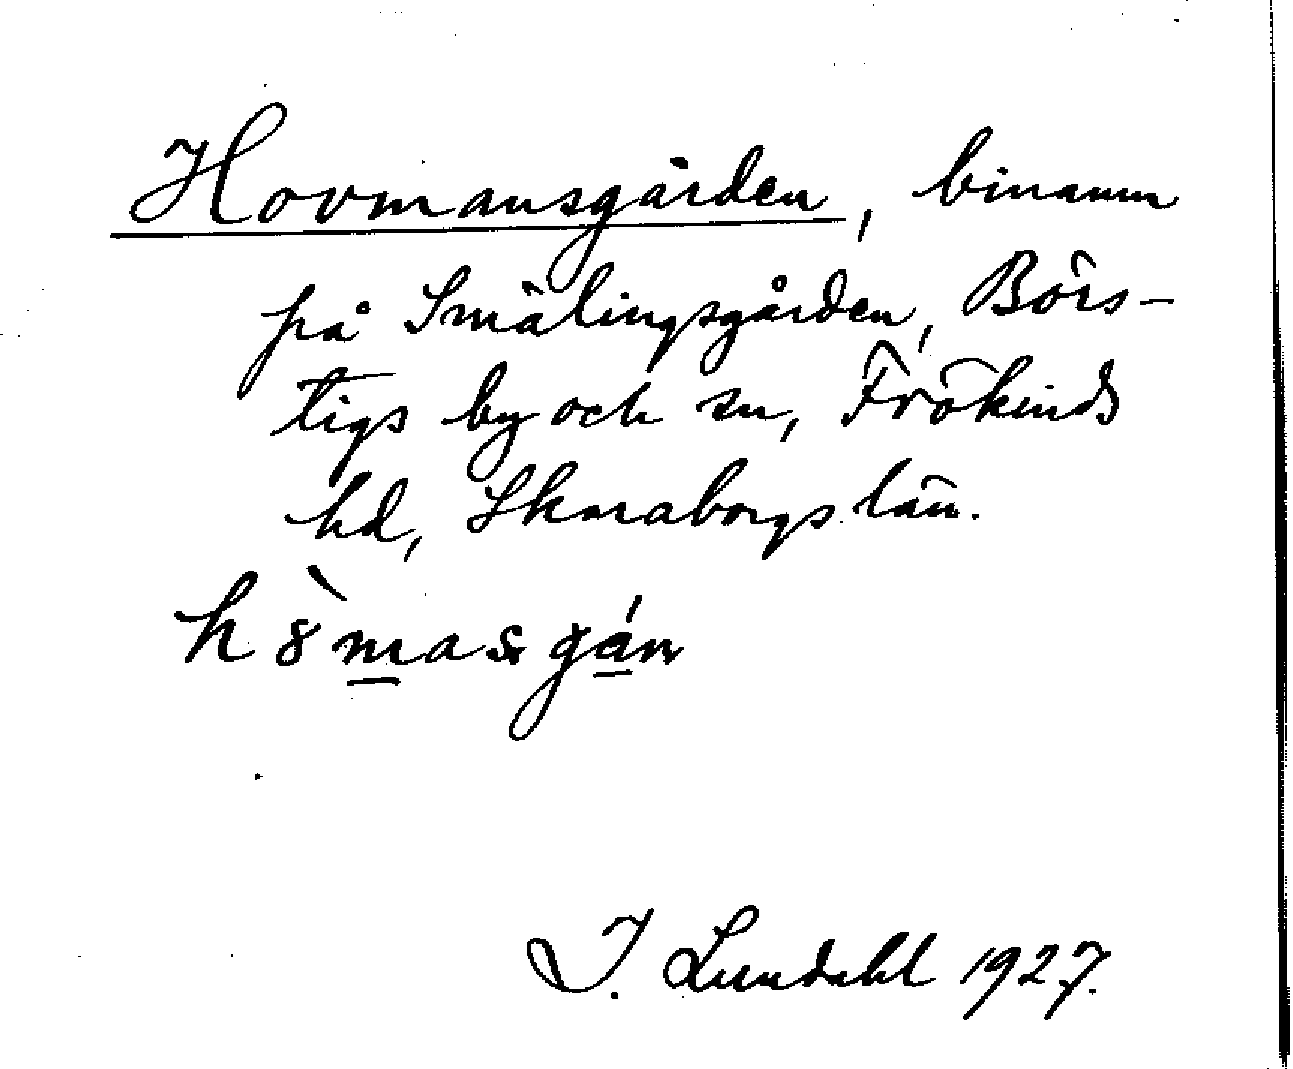 Hovmansgården, binamn
på Smålingsgården, Börs-
tigs by och sn, Frökinds
hd, Skaraborgs län.
I. Lundahl 1927.